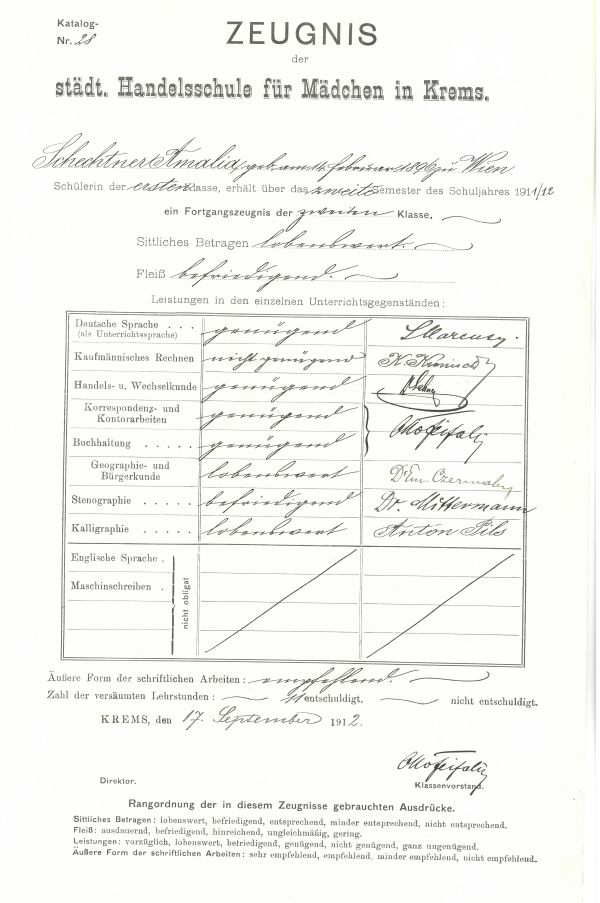 Katalog-
Nr. 28
ZEUGNIS
der
städt. Handelsschule für Mädchen in Krems.
Schechtner Amalia, geb. am 14. Februar 1896 zu Wien
Schülerin der ersten Klasse, erhält über das zweite Semester des Schuljahres 1911/12
ein Fortgangszeugnis der zweiten Klasse.
Sittliches Betragen lobenswert.
Fleiß befriedigend.
Leistungen in den einzelnen Unterrichtsgegenständen:
Deutsche Sprache . . . genügend
(als Unterrichtssprache)
Kaufmännisches Rechnen nicht genügend
Handels- u. Wechselkunde genügend
Korrespondenz- und
Kontorarbeiten genügend
Buchhaltung . . . . . genügend
Geographie- und
Bürgerkunde lobenswert
Stenographie . . . . . befriedigend Dr. Mittermann
Kalligraphie . . . . . lobenswert Anton Pils
Englische Sprache .
Maschinschreiben .
nicht obligat
Äußere Form der schriftlichen Arbeiten: empfehlend.
Zahl der versäumten Lehrstunden: entschuldigt. nicht entschuldigt.
KREMS, den 17. September 1912.
Direktor.
Klassenvorstand.
Rangordnung der in diesem Zeugnisse gebrauchten Ausdrücke.
Sittliches Betragen: lobenswert, befriedigend, entsprechend, minder entsprechend, nicht entsprechend.
Fleiß: ausdauernd, befriedigend, hinreichend, ungleichmäßig, gering.
Leistungen: vorzüglich, lobenswert, befriedigend, genügend, nicht genügend, ganz ungenügend.
Äußere Form der schriftlichen Arbeiten: sehr empfehlend, empfehlend, minder empfehlend, nicht empfehlend.